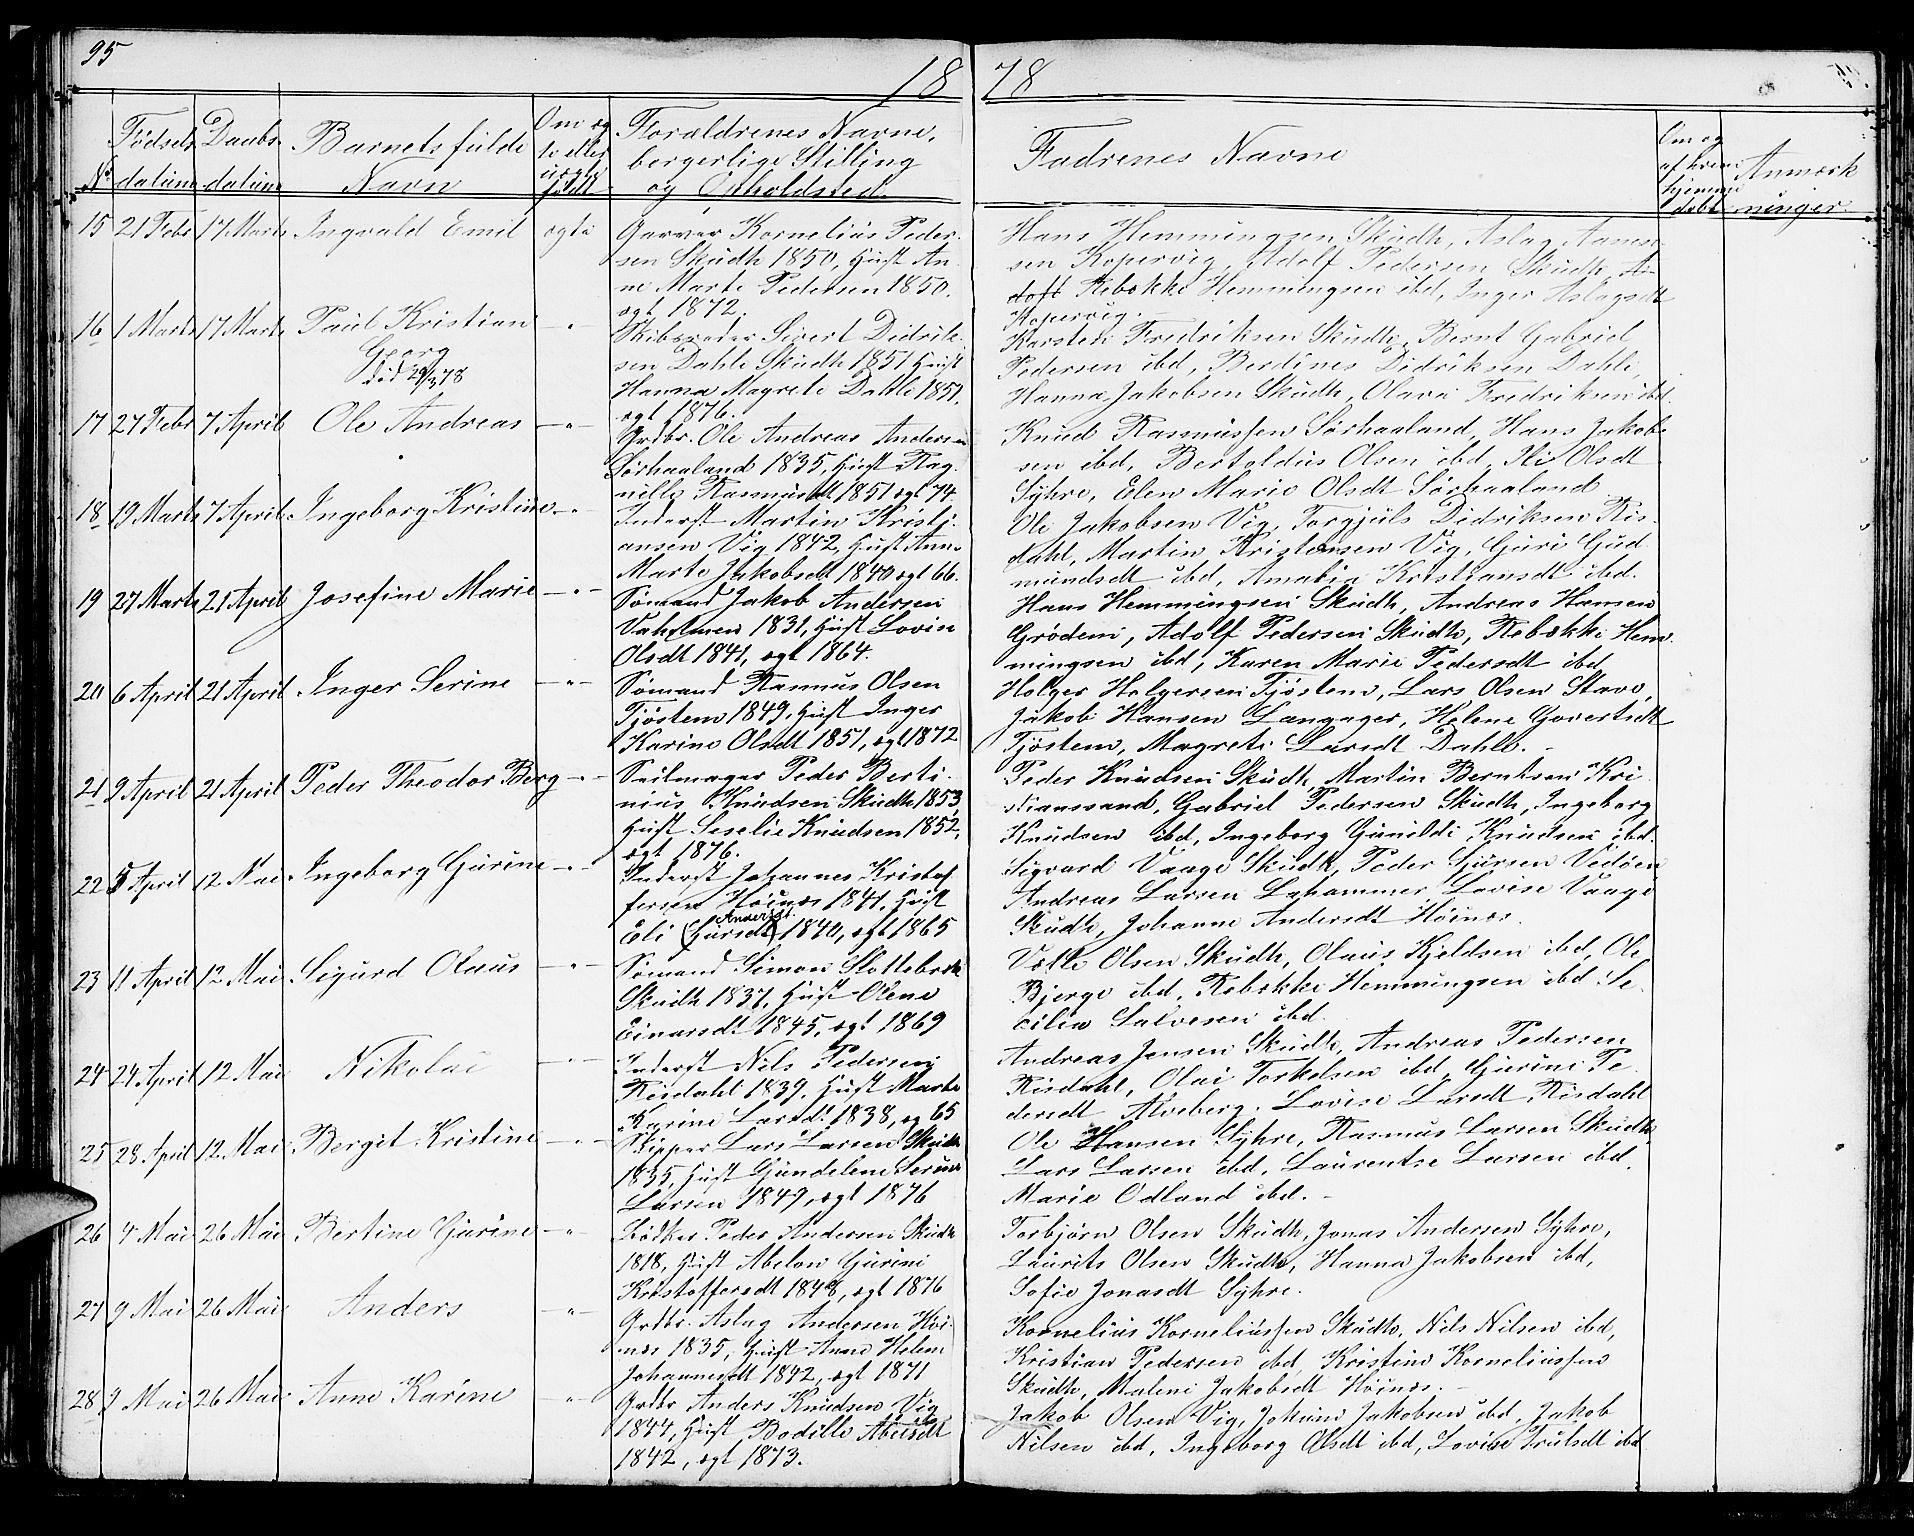 95
18 78
No.
Fødsels
datum
Daabs
datum
Barnets fulde
Navn
Om æg
te eller
uægte
født
Forældrenes Navne,
borgerlige Stilling
og Opholdsted.
Fadrenes Navne
Om og
af hvem
hjemme
døbt
Anmærk
ninger.
15 21 Febr 17 Marts Ingvald Emil ægte
Garver Kornelius Peder-
sen Skudh 1850, Hust An-
ne Marte Pedersen 1850.
ægt 1872.
Hans Hemmingsen Skudh, Aslag Aamod-
sen Kopervig, Adolf Pedersen Skudh,
Rebekke Hemmingsen ibd, Inger Aslagsdt
Kopervig.
16 1 Marts 17 Marts Paul Kristian
Georg
død 29/3 78
Skibsreder Sivert Didrik-
sen Dahle Skudh 1851 Hust
Hanna Magrete Dahle 1851,
ægt 1876.
Karsten Fredriksen Skudh, Bernt Gabriel
Pedersen ibd, Berdines Didriksen Dahle,
Hanna Jakobsen Skudh, Olava Fredriksen ibd.
17 27 Febr 7 April Ole Andreas
Grdbr. Ole Andreas Andersen
Sørhaaland 1835, Hust Rag-
nille Rasmusdt 1851 ægt 74.
Knud Rasmussen Sørhaaland, Hans Jakob-
sen ibd, Bertoldus Olsen ibd, Ili Olsdt
Syhre, Elen Marie Olsdt Sørhaaland
18 19 Marts 7 April Ingeborg Kristine
Inderst Martin Kristi-
ansen Vig 1842, Hust Anne
Marte Jakobsdt 1840 ægt 66.
Ole Jakobsen Vig, Torgjuls Didriksen Ris-
dahl, Martin Kristensen Vig, Guri Gud-
mundsdt ibd, Amalia Kristiansdt ibd.
19 27 Marts 21 April Josefine Marie
Sømand Jakob Andersen
Vaholmen 1831, Hust Lovise
Olsdt 1841, ægt 1864.
Hans Hemmingsen Skudh, Andreas Hansen
Grødem, Adolf Pedersen Skudh, Rebekke Hem-
mingsen ibd, Karen Marie Pedersdt ibd
20 6 April 21 April Inger Serine
Sømand Rasmus Olsen
Tjøstem 1849, Hust Inger
Karine Olsdt 1851, ægt 1872
Holger Holgersen Tjøstem, Lars Olsen Stave,
Jakob Hansen Langager, Helene Govertsdt
Tjøstem, Magrete Larsdt Dahle.
21 9 April 21 April Peder Theodor Berg
Seilmager Peder Berti-
nius Knudsen Skudh 1853,
Hust Seselie Knudsen 1852,
ægt 1876.
Peder Knudsen Skudh, Martin Berntsen Kri-
stianssand, Gabriel Pedersen Skudh, Ingeborg
Knudsen ibd, Ingeborg Gunilde Knudsen ibd.
22 5 April 12 Mai Ingeborg Gurine
Inderst Johannes Kristof-
fersen Høines 1841, Hust
Andersdt.
Eli (Gursdt) 1840, ægt 1865
Sigvard Vaage Skudh, Peder Sjursen Vedøen
Andreas Larsen Lahammer Lovise Vaage
Skudh, Johanne Andersdt Høines.
23 11 April 12 Mai Sigurd Olaus
Sømand Simon Slottebrek
Skudh 1837, Hust Olene
Einarsdt 1845, ægt 1869
Velle Olsen Skudh, Olaus Kjeldsen ibd, Ole
Bjerge ibd, Rebekke Hemmingsen ibd. Se-
cilia Salvesen ibd.
24 24 April 12 Mai Nikolai
Inderst Nils Pedersen
Risdahl 1839, Hust Marte
Karine Larsdt 1838, æg 65
Andreas Jensen Skudh, Andreas Pedersen
Risdahl, Olai Torkelsen ibd, Gurine Pe-
dersdt Alveberg. Lovise Larsdt Risdahl
25 28 April 12 Mai Bergit Kristine
Skipper Lars Larsen Skudh
1835, Hust Gundelene Serine
Larsen 1849, ægt 1876
Ole Hansen Syhre, Rasmus Larsen Skudh
Lars Larsen ibd, Laurentse Larsen ibd,
Marie Odland ibd.
26 4 Mai 26 Mai Bertine Gurine
Bødker Peder Andersen Skudh
1818, Hust Abelon Gurine
Kristoffersdt 1848, ægt 1876
Torbjørn Olsen Skudh, Jonas Andersen Syhre,
Laurits Olsen Skudh, Hanna Jakobsen ibd,
Sofie Jonasdt Syhre.
27 9 Mai 26 Mai Anders
Grdbr. Aslag Andersen Høi-
nes 1835, Hust Anne Helene
Johannesdt 1842, ægt 1871
Kornelius Korneliussen Skudh, Nils Nilsen ibd,
Kristian Pedersen ibd, Kristine Korneliussen
Skudh, Malene Jakobsdt Høines.
28 9 Mai 26 Mai Anne Karine
Grdbr Anders Knudsen Vig
1844, Hust Bodille Abelsdt
1842, ægt 1873.
Jakob Olsen Vig, Jokum Jakobsen ibd, Jakob
Nilsen ibd, Ingeborg Olsdt ibd, Lovise Trulsdt ibd